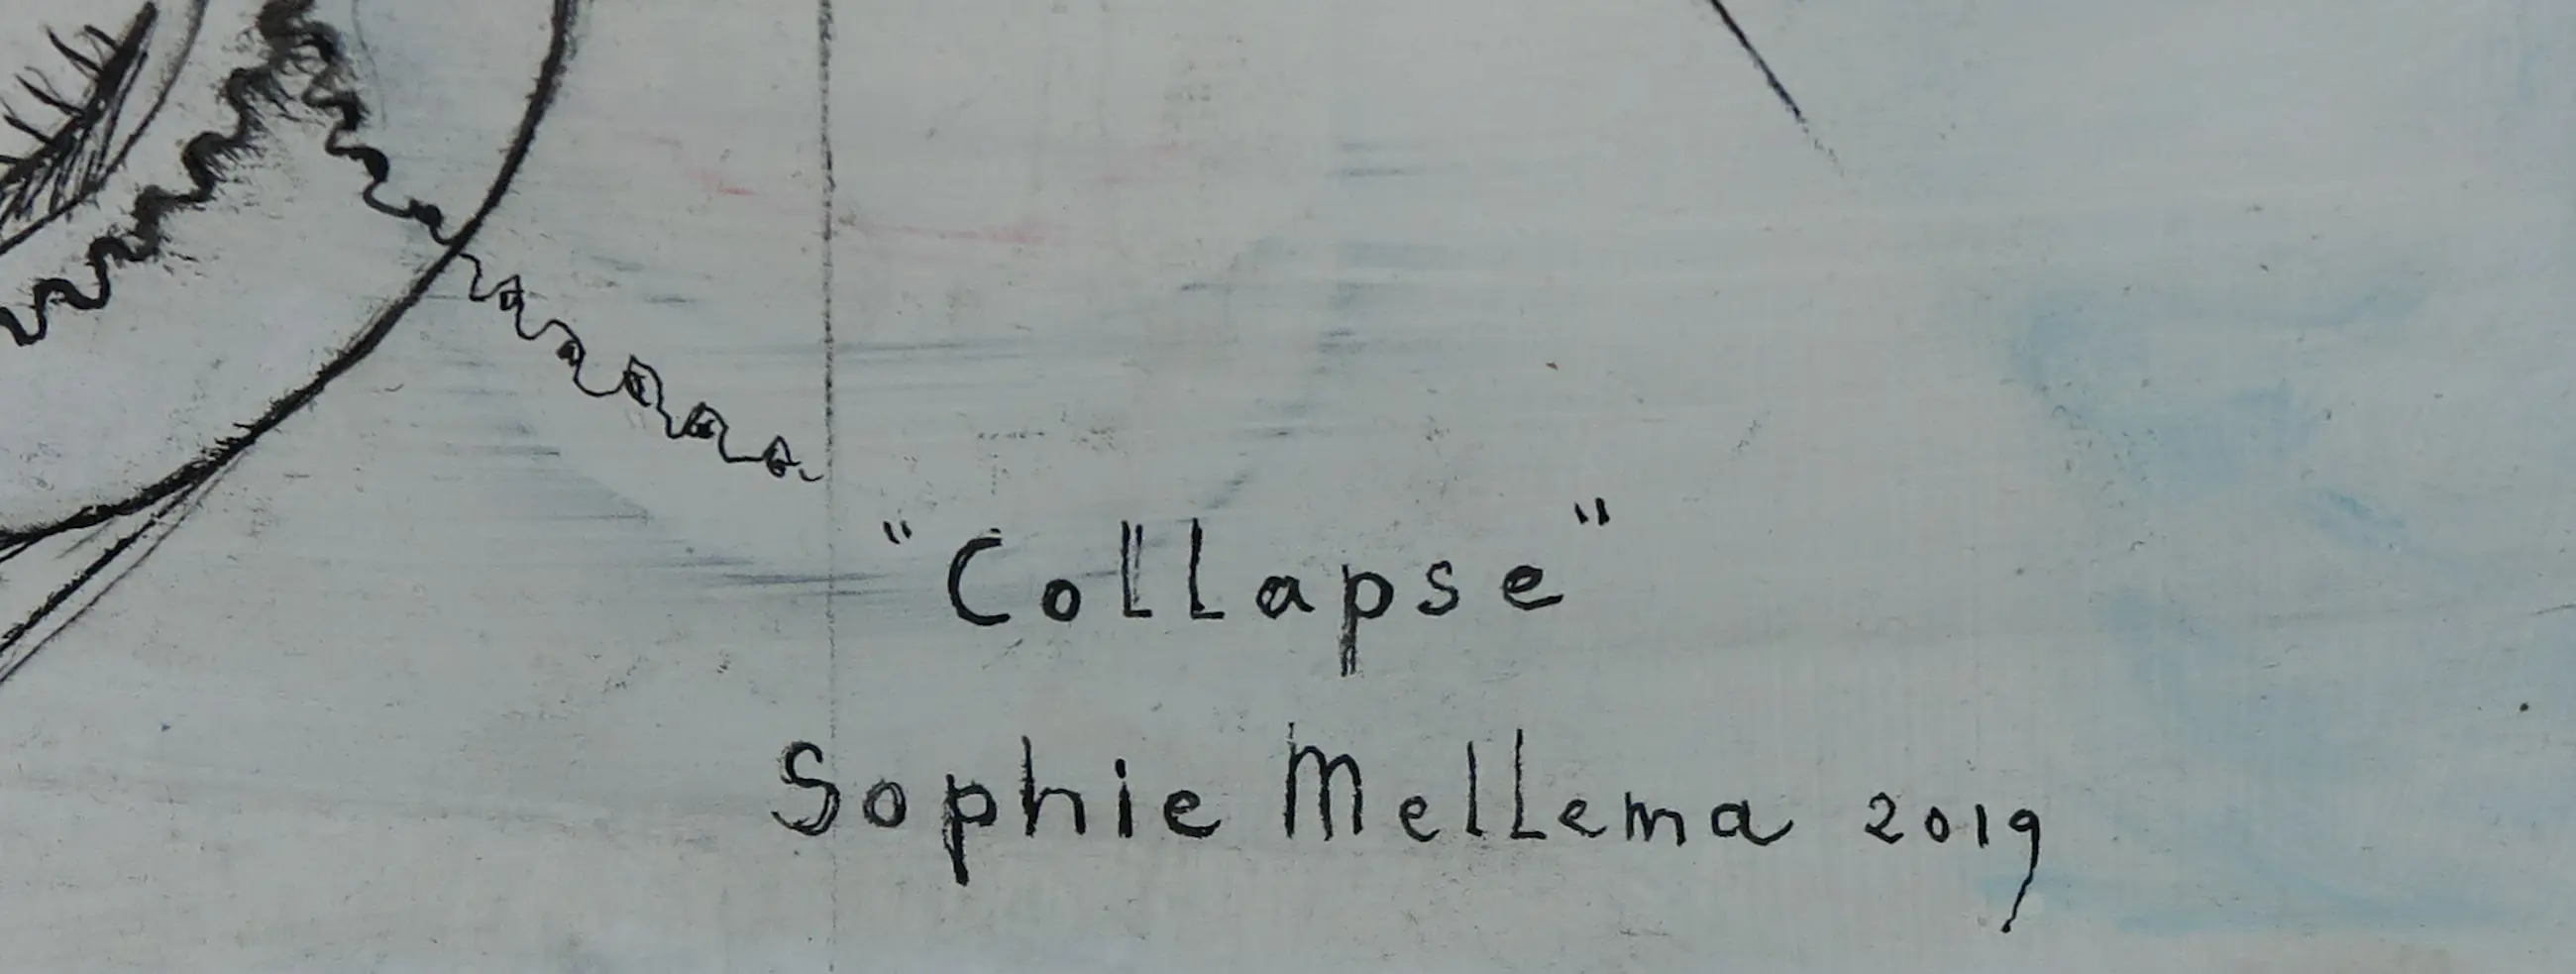 "Collapse"
Sophie Mellema 2019